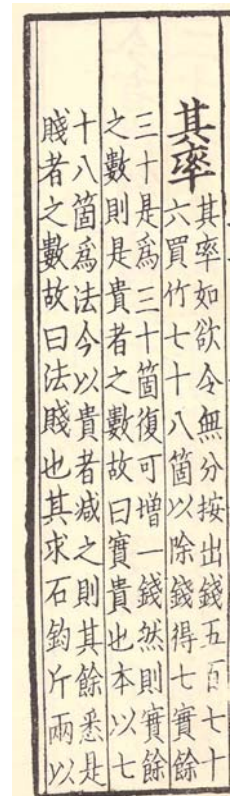 其率其率如欲令無分按出錢五百七十
六買竹七十八箇以除錢得七實餘
三十是爲三十箇復可增一錢然則實餘
之數則是貴者之數故曰實貴也本以七
十八箇爲法今以貴者减之則其餘悉是
賤者之數故曰法賤也其求石鈞斤兩以